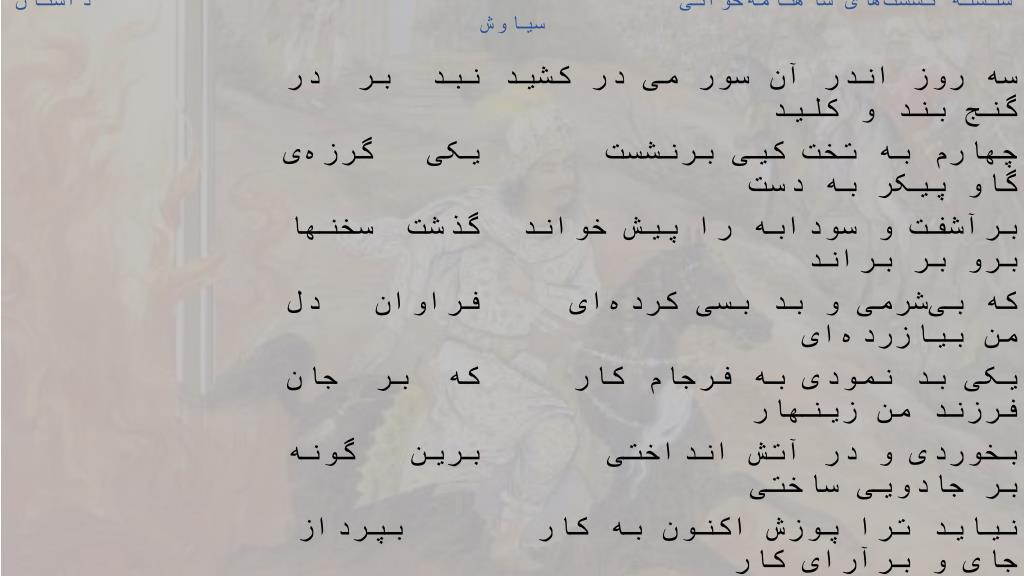 سلسله نشست‌های شاهنامه‌خوانی داستان
سیاوش
سه روز اندر آن سور می در کشید نبد بر در
گنج بند و کلید
چهارم به تخت کیی برنشست یکی گرزه‌ی
گاو پیکر به دست
برآشفت و سودابه را پیش خواند گذشت سخنها
برو بر براند
که بی‌شرمی و بد بسی کرده‌ای فراوان دل
من بیازرده‌ای
یکی بد نمودی به فرجام کار که بر جان
فرزند من زینهار
بخوردی و در آتش انداختی برین گونه
بر جادویی ساختی
نیاید ترا پوزش اکنون به کار بپرداز
جای و برآرای کار